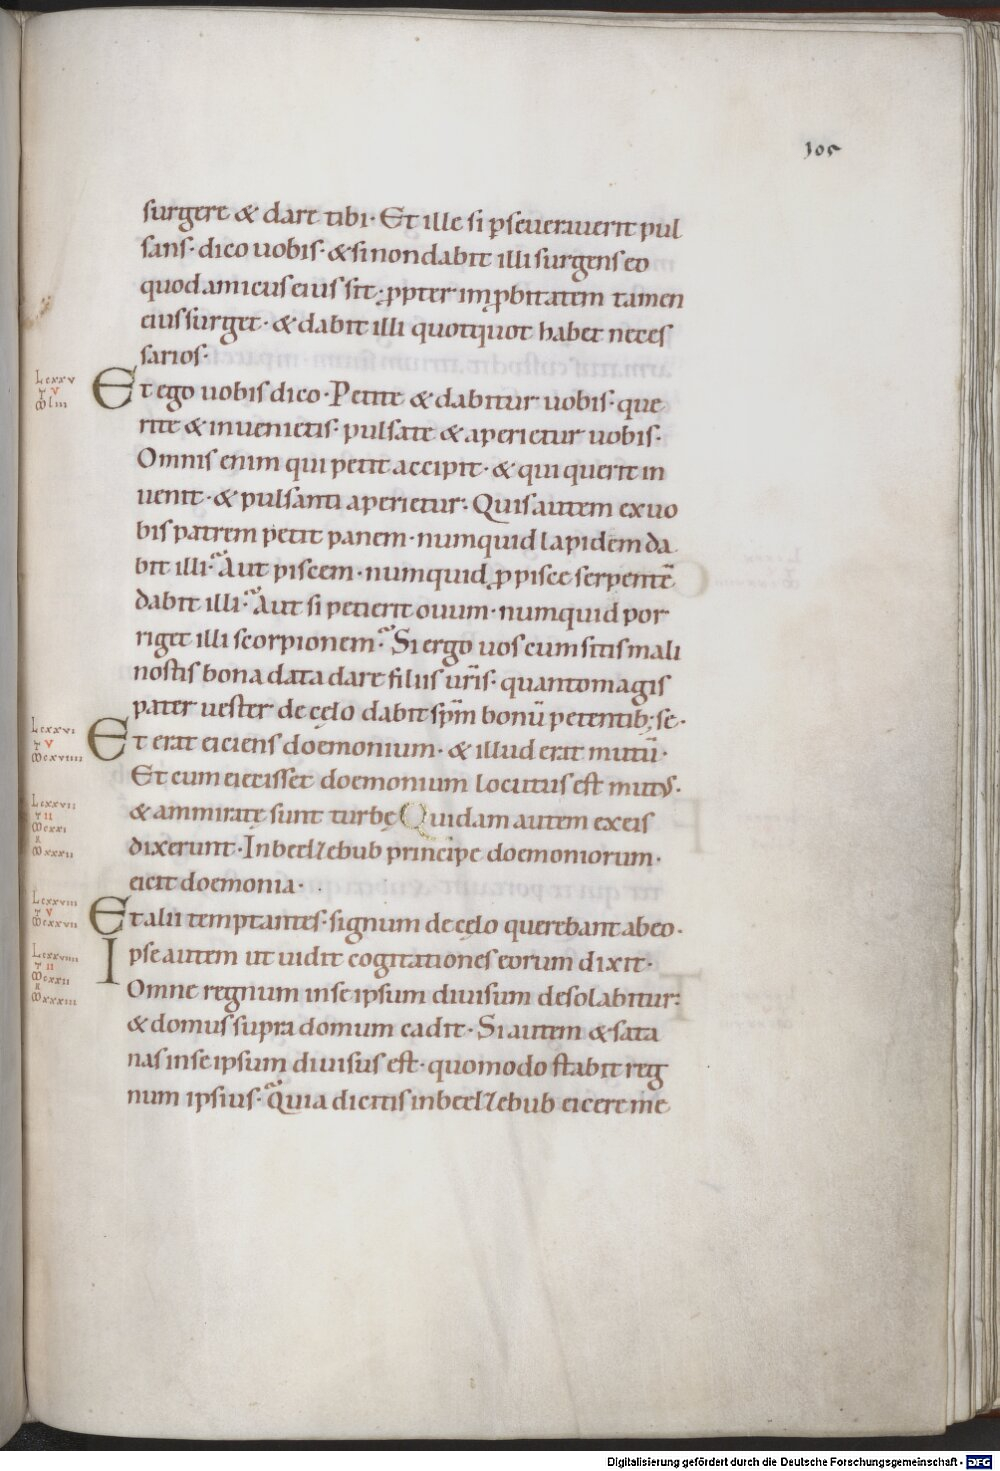 105
surgere & dare tibi · Et ille si ꝑseuerauerit pul
sans · dico uobis · & si non dabit illi surgens eo
quod amicus eius sit ; ꝓpter imꝓbitatem tamen
eius surget · & dabit illi quotquot habet neces
sarios ·
L cxxv
Et ego uobis dico · Petite & dabitur uobis · que
T V
M liii
rite & inuenietis · pulsate & aperietur uobis ·
Omnis enim qui petit accipit · & qui querit in
uenit · & pulsanti aperietur · Quis autem ex uo
bis patrem petit panem · numquid lapidem da
bit illi · Aut piscem · numquid ꝓ pisce serpentē
dabit illi · Aut si petierit ouum · numquid por
riget illi scorpionem · Si ergo uos cum sitis mali
nostis bona data dare filiis ur̄is · quanto magis
pater uester de cęlo dabit sp̄m bonū petentib; se ·
L cxxvi
T V
M cxviiii
Et erat eiciens doemonium · & illud erat mutū ·
Et cum eiecisset doemonium locutus est mutus ·
L cxxvii
T II
M cxxi
R
M xxxii
& ammiratę sunt turbę Quidam autem ex eis
dixerunt · In beelzebub principe doemoniorum ·
eicit doemonia ·
L cxxviii
T V
M cxxvii
Et alii temptantes · signum de cęlo querebant ab eo ·
L cxxviiii
T II
M cxxii
R
M xxxiii
Ipse autem ut uidit cogitationes eorum dixit ·
Omne regnum in se ipsum diuisum desolabitur :
& domus supra domum cadit · Si autem & sata
nas in se ipsum diuisus est · quomodo stabit reg
num ipsius · Quia dicitis in beelzebub eicere me
Digitalisierung gefördert durch die Deutsche Forschungsgemeinschaft - DFG